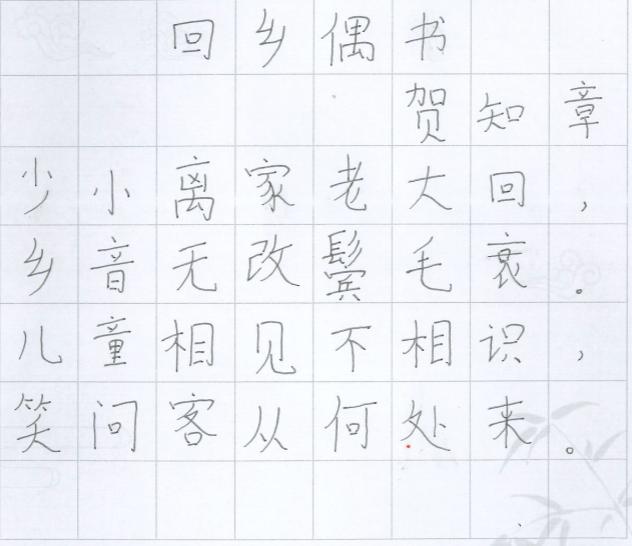 回乡偶书
贺知章
少小离家老大回，
乡音无改鬓毛衰。
儿童相见不相识，
笑问客从何处来。